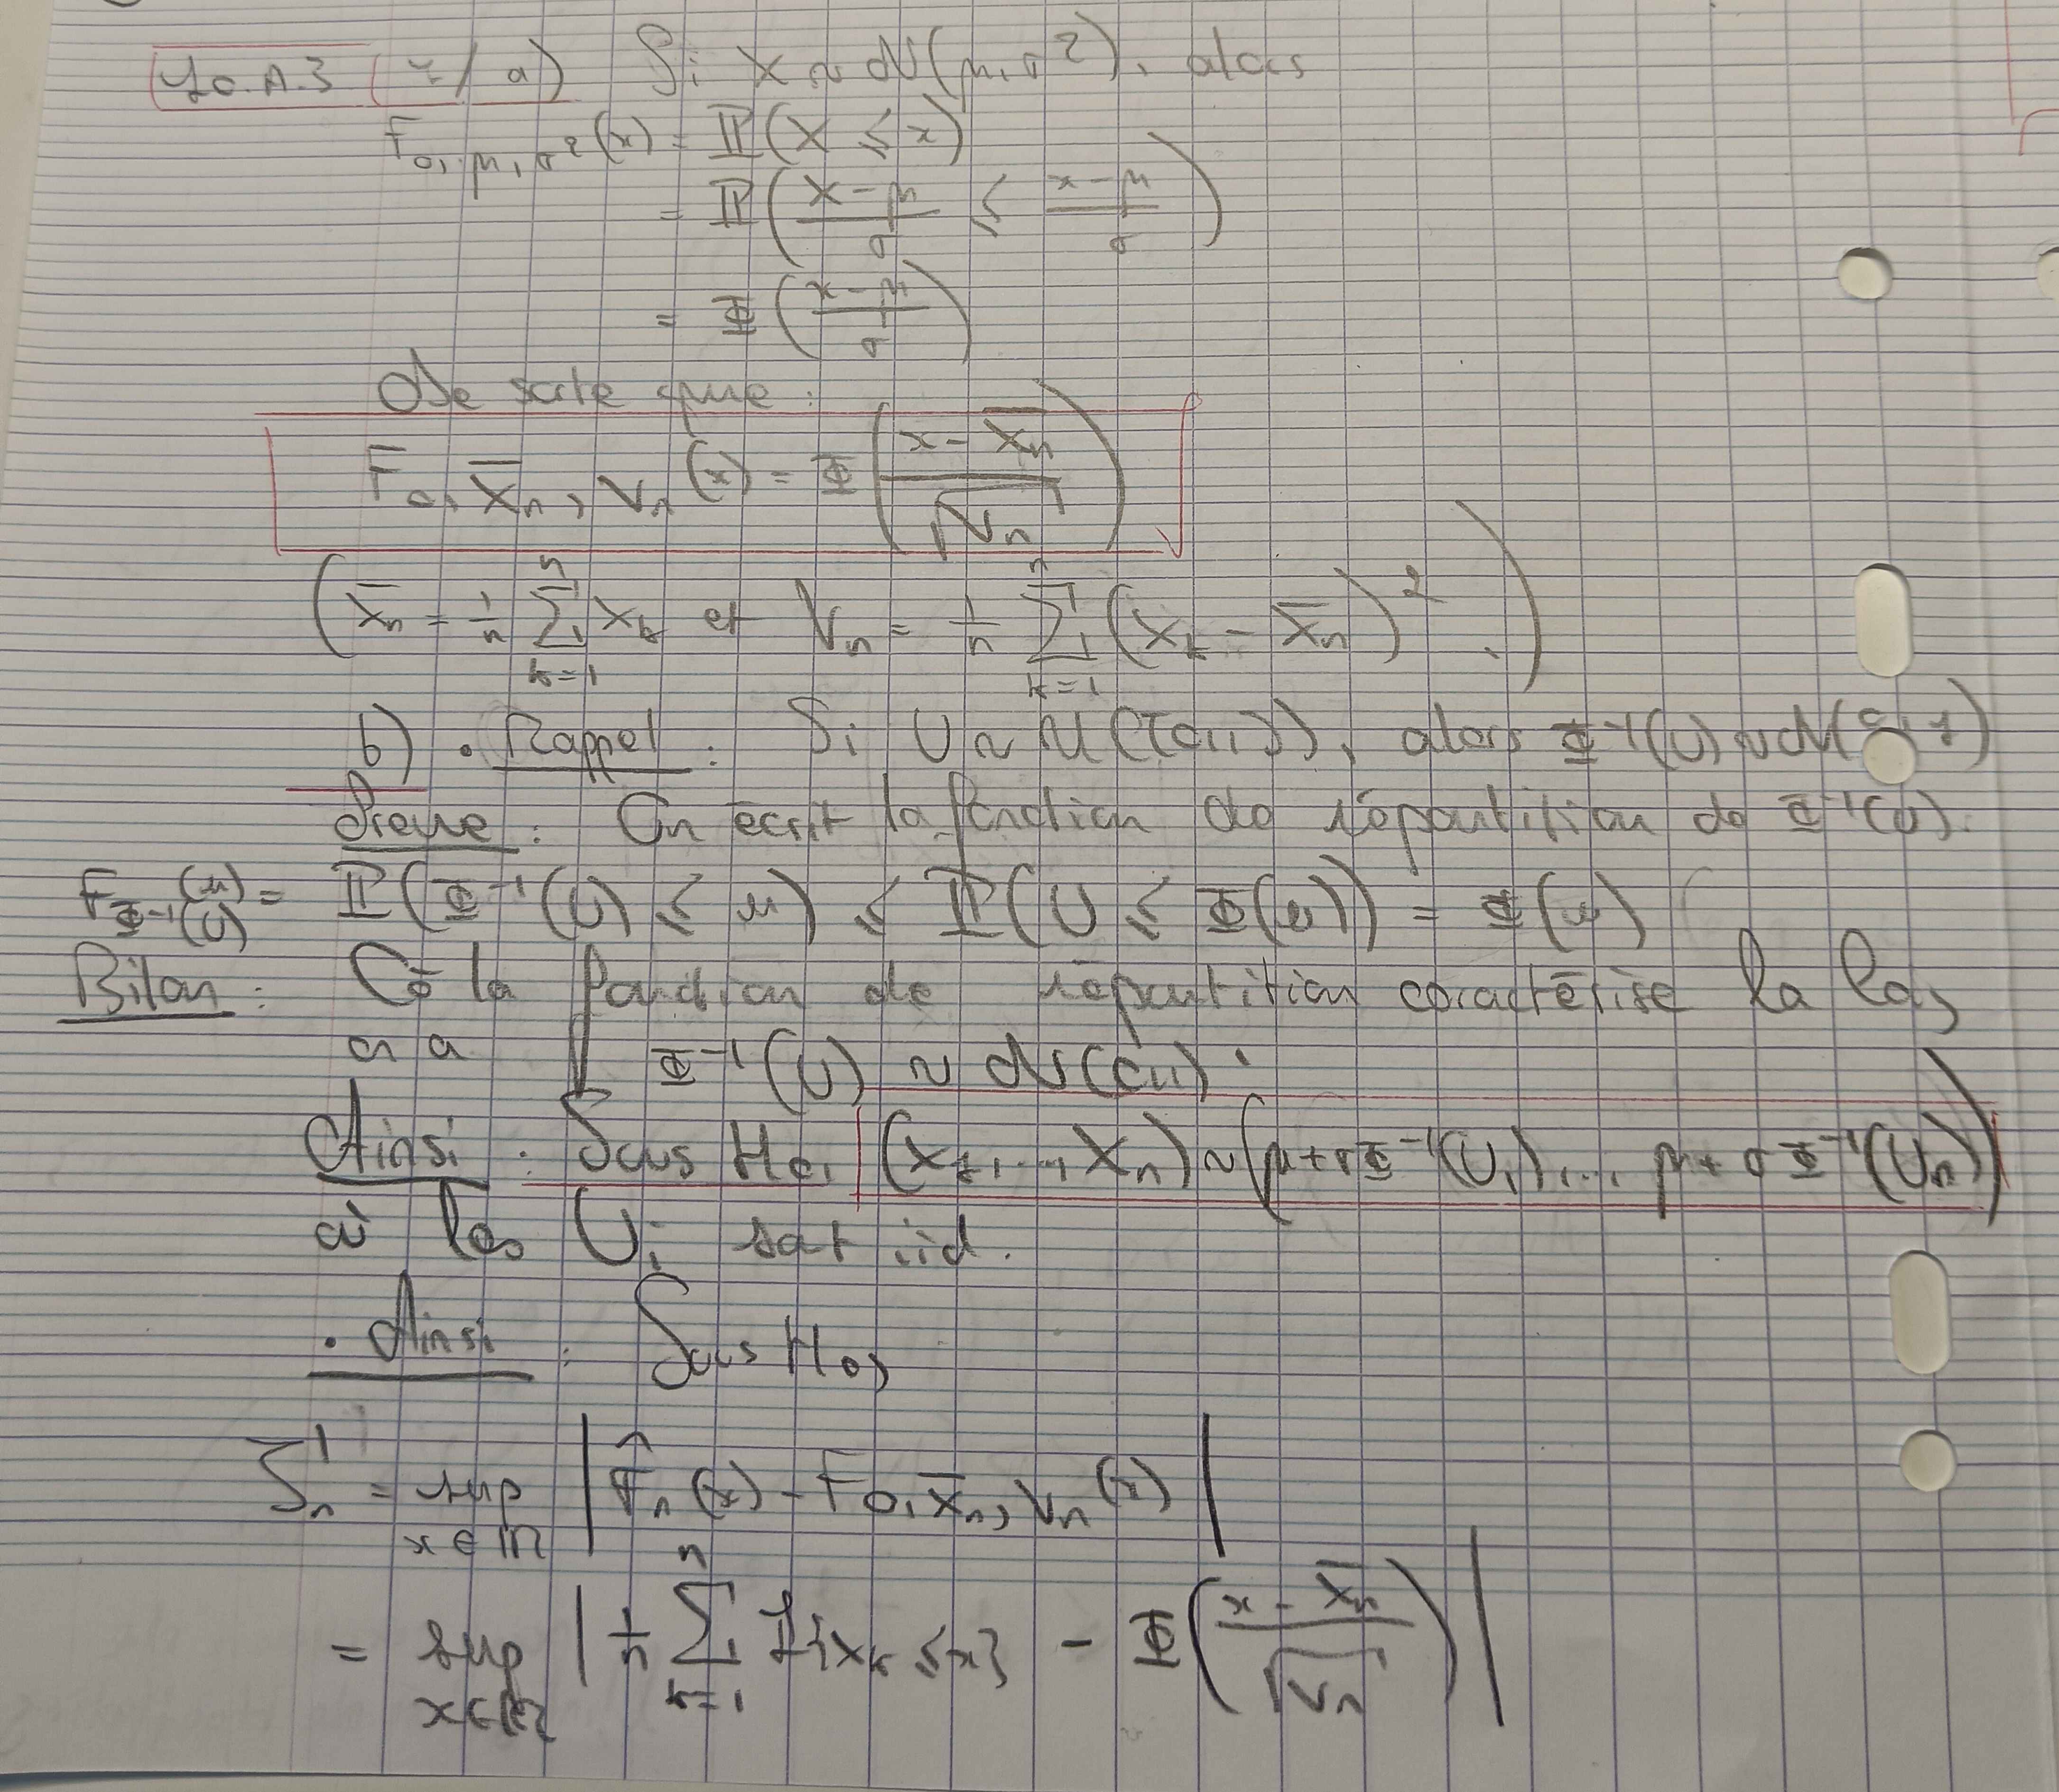 Yo.A.3 (1/ a) Si X ~ N(μ,σ²), alors
F₀,μ,σ²(x) = ℙ(X ≤ x)
= ℙ((X-μ)/σ ≤ (x-μ)/σ)
= Φ((x-μ)/σ)
De sorte que :
F₀, X̄ₙ, Vₙ(x) = Φ((x - X̄ₙ)/√Vₙ)
(X̄ₙ = 1/n ∑ₖ₌₁ⁿ Xₖ et Vₙ = 1/n ∑ₖ₌₁ⁿ (Xₖ - X̄ₙ)².)
b) • Rappel : Si U ~ U([0,1]), alors Φ⁻¹(U) ~ N(0,1)
Preuve : On écrit la fonction de répartition de Φ⁻¹(U).
F_Φ⁻¹(U)(u) = ℙ(Φ⁻¹(U) ≤ u) ≤ ℙ(U ≤ Φ(u)) = Φ(u)
Bilan : Cô la fonction de répartition caractérise la loi,
on a Φ⁻¹(U) ~ N(0,1).
Ainsi : Sous H₀, (X₁,..., Xₙ) ~ (μ+σΦ⁻¹(U₁),... μ+σΦ⁻¹(Uₙ))
où les Uᵢ sont iid.
• Ainsi : Sous H₀,
ζₙ¹ = sup x∈ℝ | F̂ₙ(x) - F₀, X̄ₙ, Vₙ(x) |
= sup x∈ℝ | 1/n ∑ₖ₌₁ⁿ 𝟙{Xₖ ≤ x} - Φ((x - X̄ₙ)/√Vₙ) |